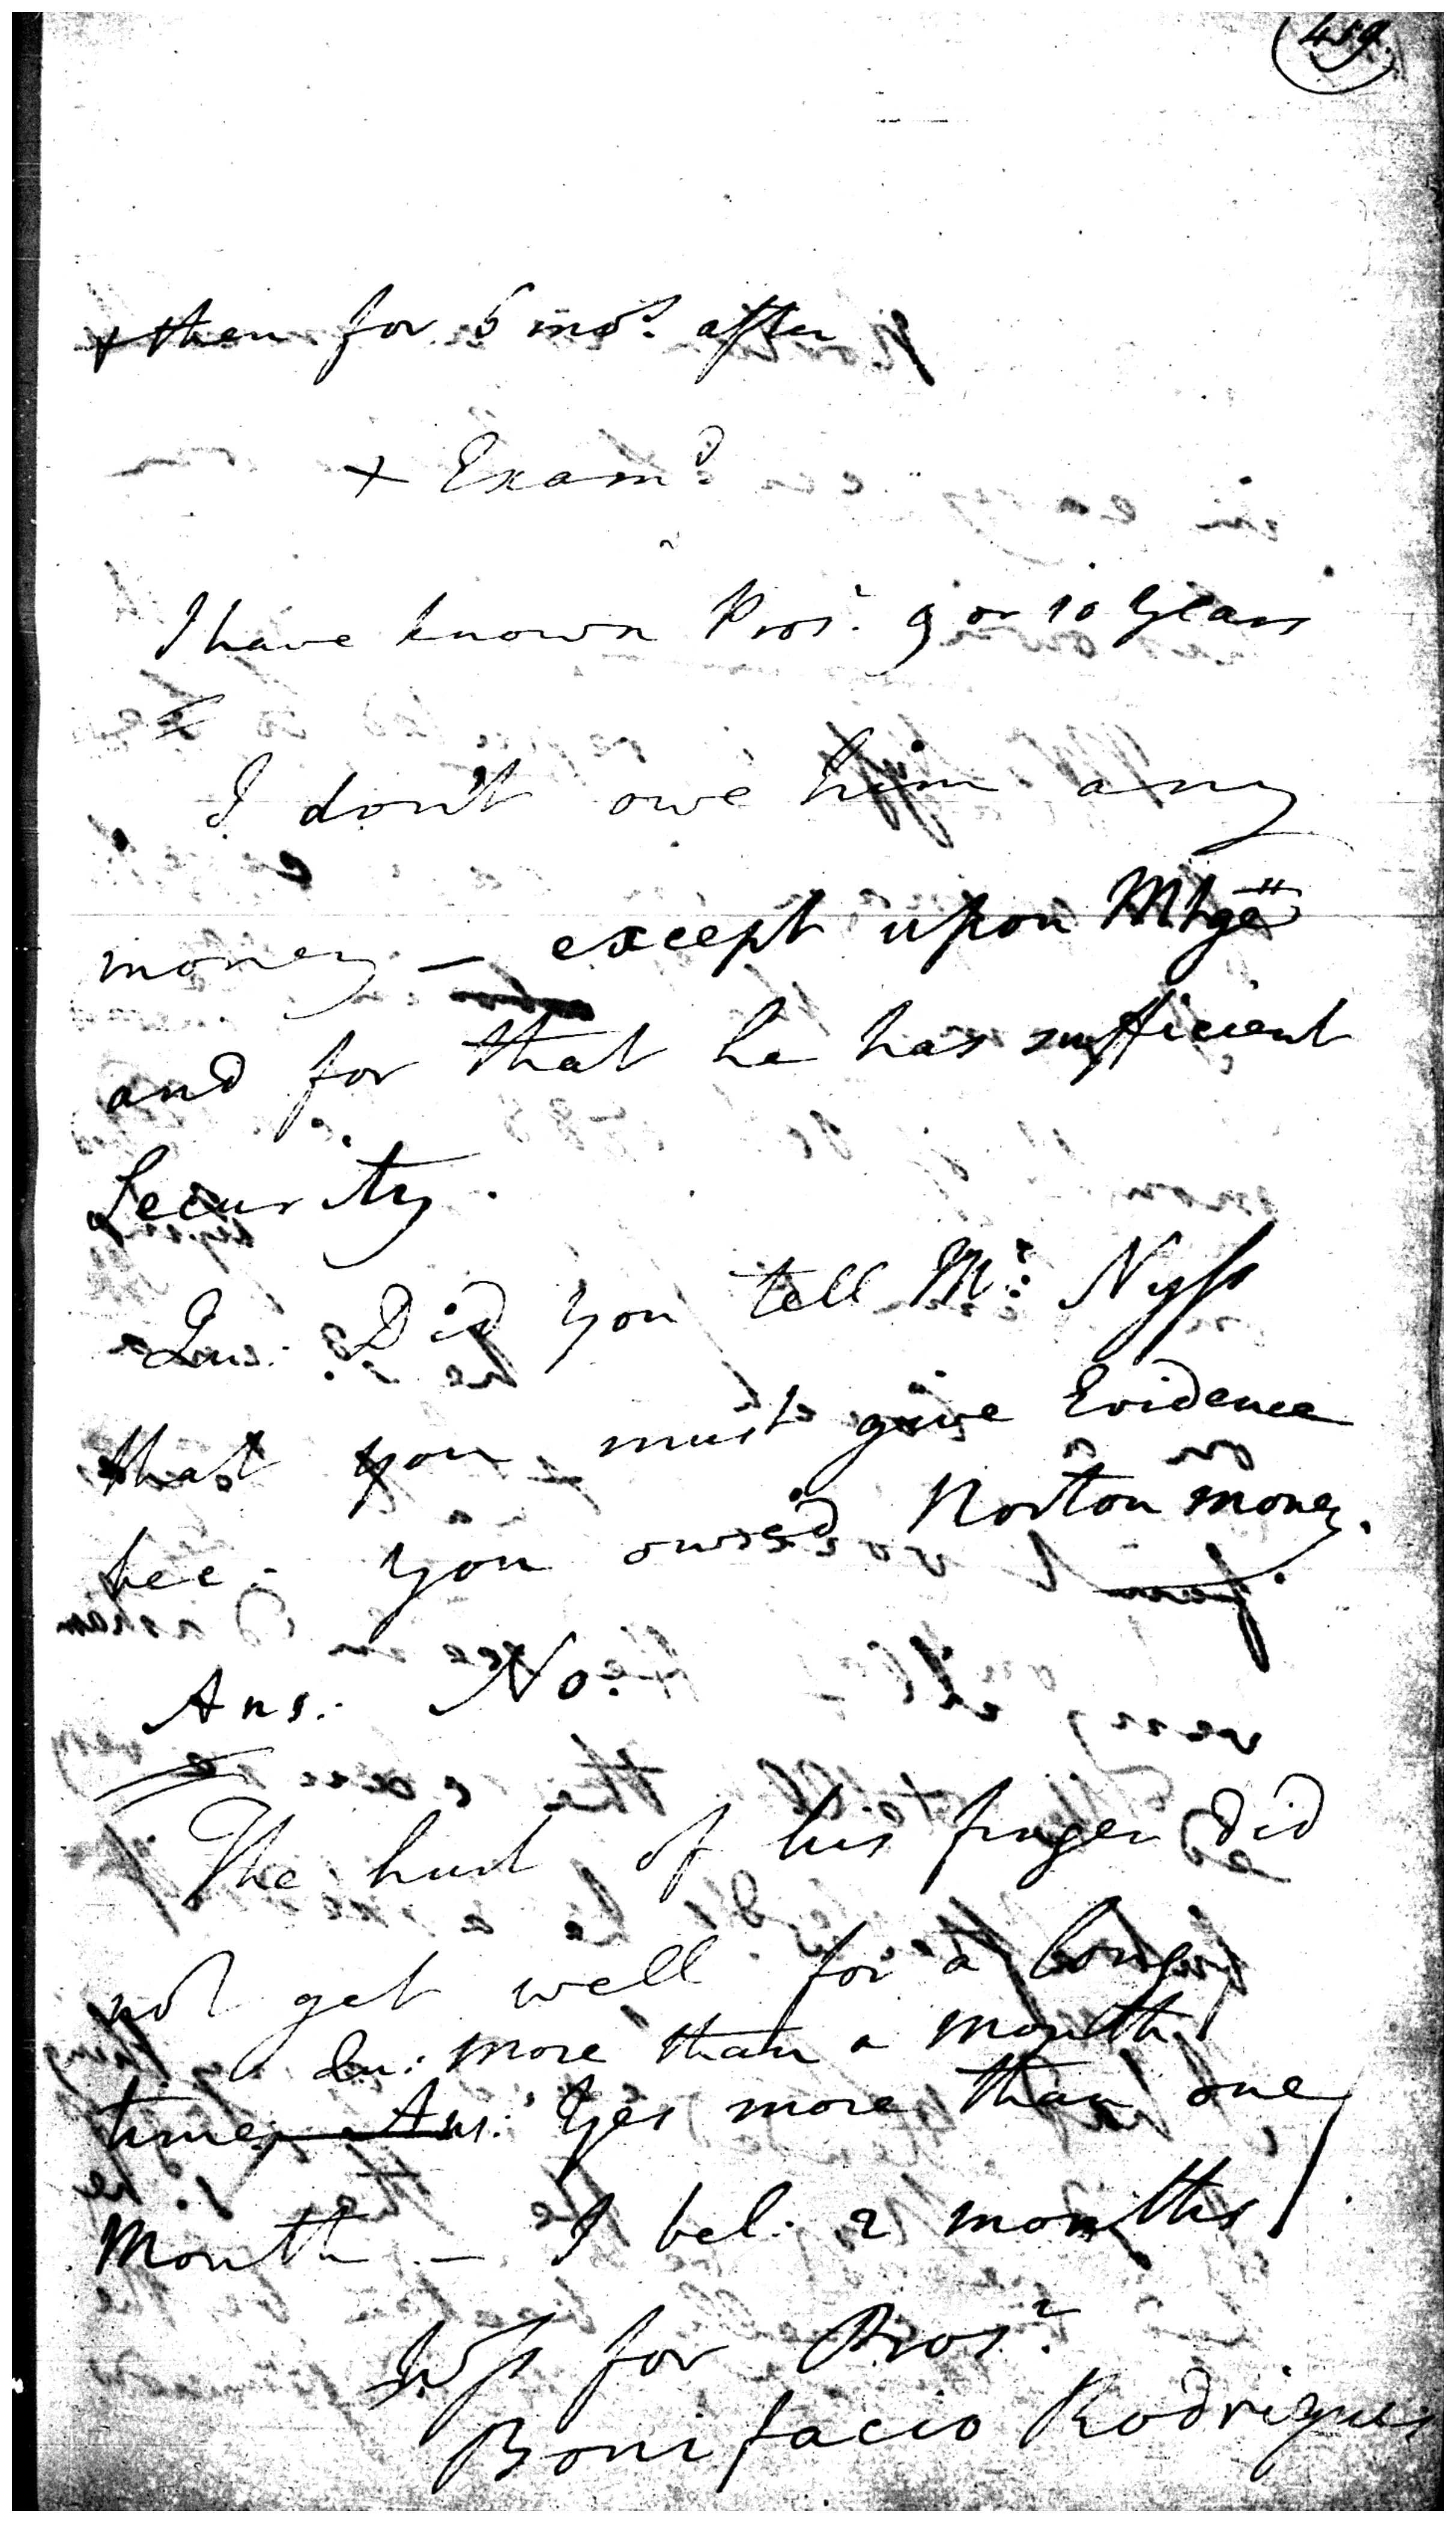 459.
& then for 5 mos. after
X Examd.
I have known Prosr. 9 or 10 Years
I don't owe him any
money – except upon Mtge
and for that he has sufficient
Security.
Qu: Did you tell Mrs. Nyss
that you must give Evidence
bec: you owed Norton money.
Ans: No.
The hurt of his finger did
not get well for a long
Qu: more than a month
time, Ans: Yes more than one
Month – I bel: 2 months
Wss for Prosr.
Bonifacio Rodrigues